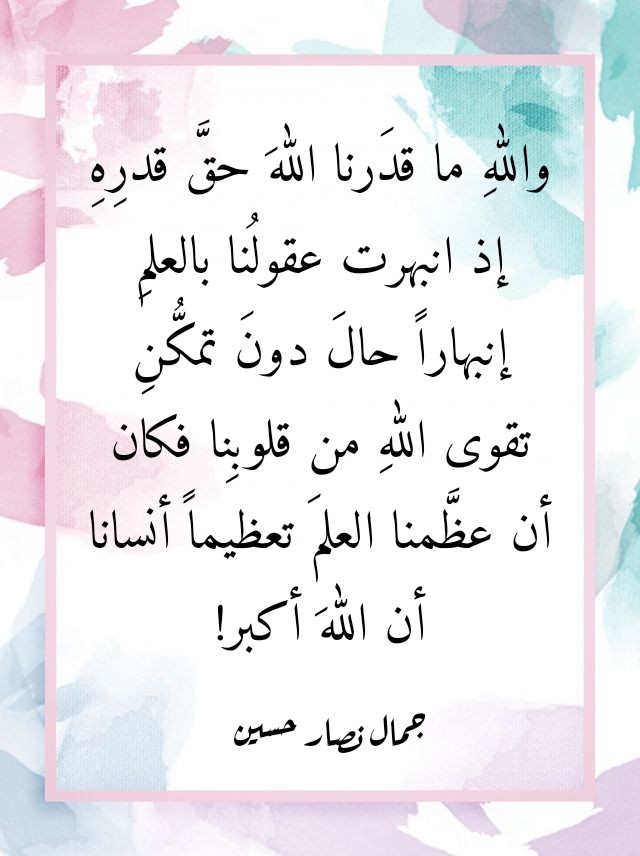 واللهِ ما قدَرنا اللهَ حقَّ قدرِهِ
إذ انبهرت عقولُنا بالعلمِ
إنبهاراً حالَ دونَ تمكُّنِ
تقوى اللهِ من قلوبِنا فكان
أن عظَّمنا العلمَ تعظيماً أنسانا
أن اللهَ أكبر!
جمال نصار حسين